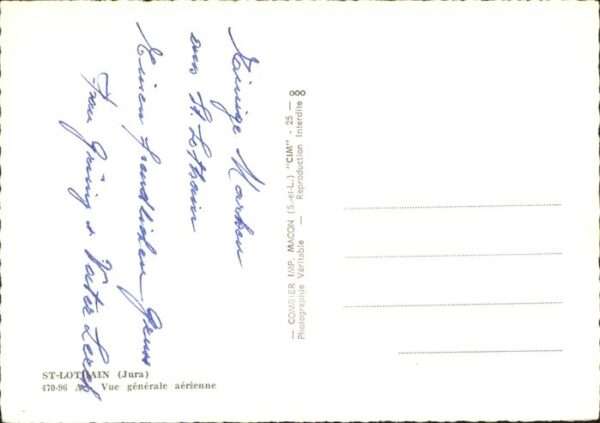 Einige Marken
aus St. Lothain
Einen freundlichen Gruss
Frau & Vater
— COMBIER IMP. MACON (S.-et-L.) "CIM" - 25 —
Photographie Véritable — Reproduction Interdite
ST-LOTHAIN (Jura)
470-96 A. - Vue générale aérienne